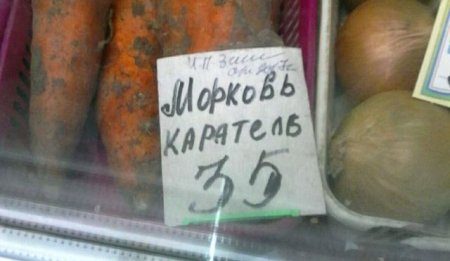 ИП
Морковь
каратель
35